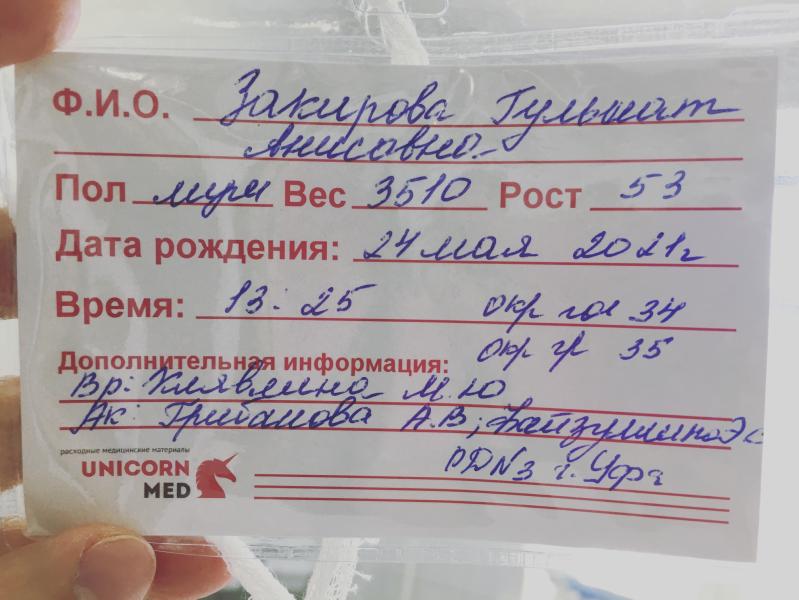 Ф.И.О. Закирова Гульшат
Анисовна
Пол муж Вес 3510 Рост 53
Дата рождения: 24 мая 2021г
Время: 13:25 окр гол 34
окр гр 35
Дополнительная информация:
Вр: Клявлина М.Ю
Ак: Грибанова А.В; Файзуллина Э
расходные медицинские материалы
UNICORN
MED
РД N3 г. Уфа